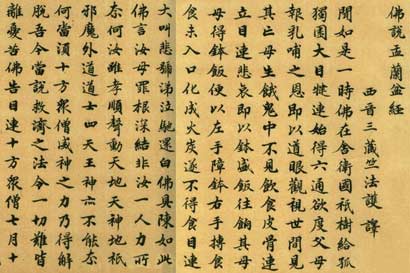 佛說盂蘭盆經
西晉三藏竺法護譯
聞如是一時佛在舍衛國祇樹給孤
獨園大目犍連始得六通欲度父母
報乳哺之恩即以道眼觀視世間見
其亡母生餓鬼中不見飲食皮骨連
立目連悲哀即以鉢盛飯往餉其母
母得鉢飯便以左手障鉢右手摶
食未入口化成火炭遂不得食目連
大叫悲號涕泣馳還白佛具陳如此
佛言汝母罪根深結非汝一人力所
奈何汝雖孝順聲動天地天神地祇
邪魔外道道士四天王神亦不能奈
何當須十方眾僧威神之力乃得解
脫吾今當說救濟之法令一切難皆
離憂苦佛告目連十方眾僧七月十